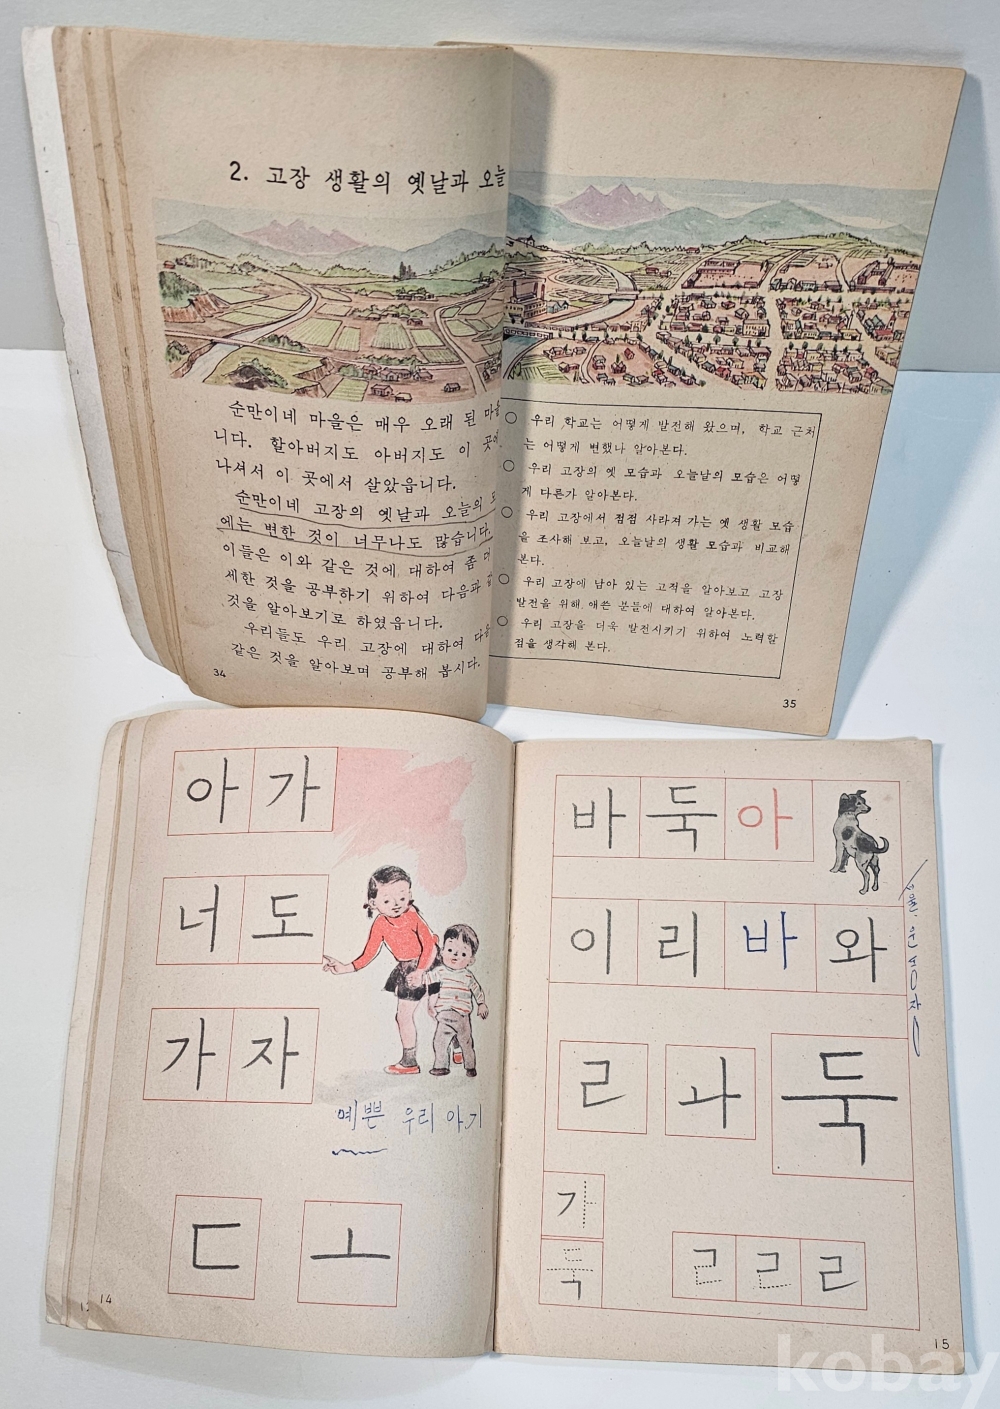 2. 고장 생활의 옛날과 오늘
순만이네 마을은 매우 오래 된 마을
니다. 할아버지도 아버지도 이 곳에
나셔서 이 곳에서 살았읍니다.
순만이네 고장의 옛날과 오늘의 모
에는 변한 것이 너무나도 많습니다.
이들은 이와 같은 것에 대하여 좀 더
세한 것을 공부하기 위하여 다음과 같
것을 알아보기로 하였읍니다.
우리들도 우리 고장에 대하여 다음
같은 것을 알아보며 공부해 봅시다.
34
○ 우리 학교는 어떻게 발전해 왔으며, 학교 근처
는 어떻게 변했나 알아본다.
○ 우리 고장의 옛 모습과 오늘날의 모습은 어떻
게 다른가 알아본다.
○ 우리 고장에서 점점 사라져 가는 옛 생활 모습
을 조사해 보고, 오늘날의 생활 모습과 비교해
본다.
○ 우리 고장에 남아 있는 고적을 알아보고 고장
발전을 위해 애쓴 분들에 대하여 알아본다.
○ 우리 고장을 더욱 발전시키기 위하여 노력할
점을 생각해 본다.
35
아가
너도
가자
예쁜 우리 아기
ㄷ ㅗ
14
바둑아
이리 바와
ㄹ ㅘ 둑
가
둑 ㄹ ㄹ ㄹ
15
kobay